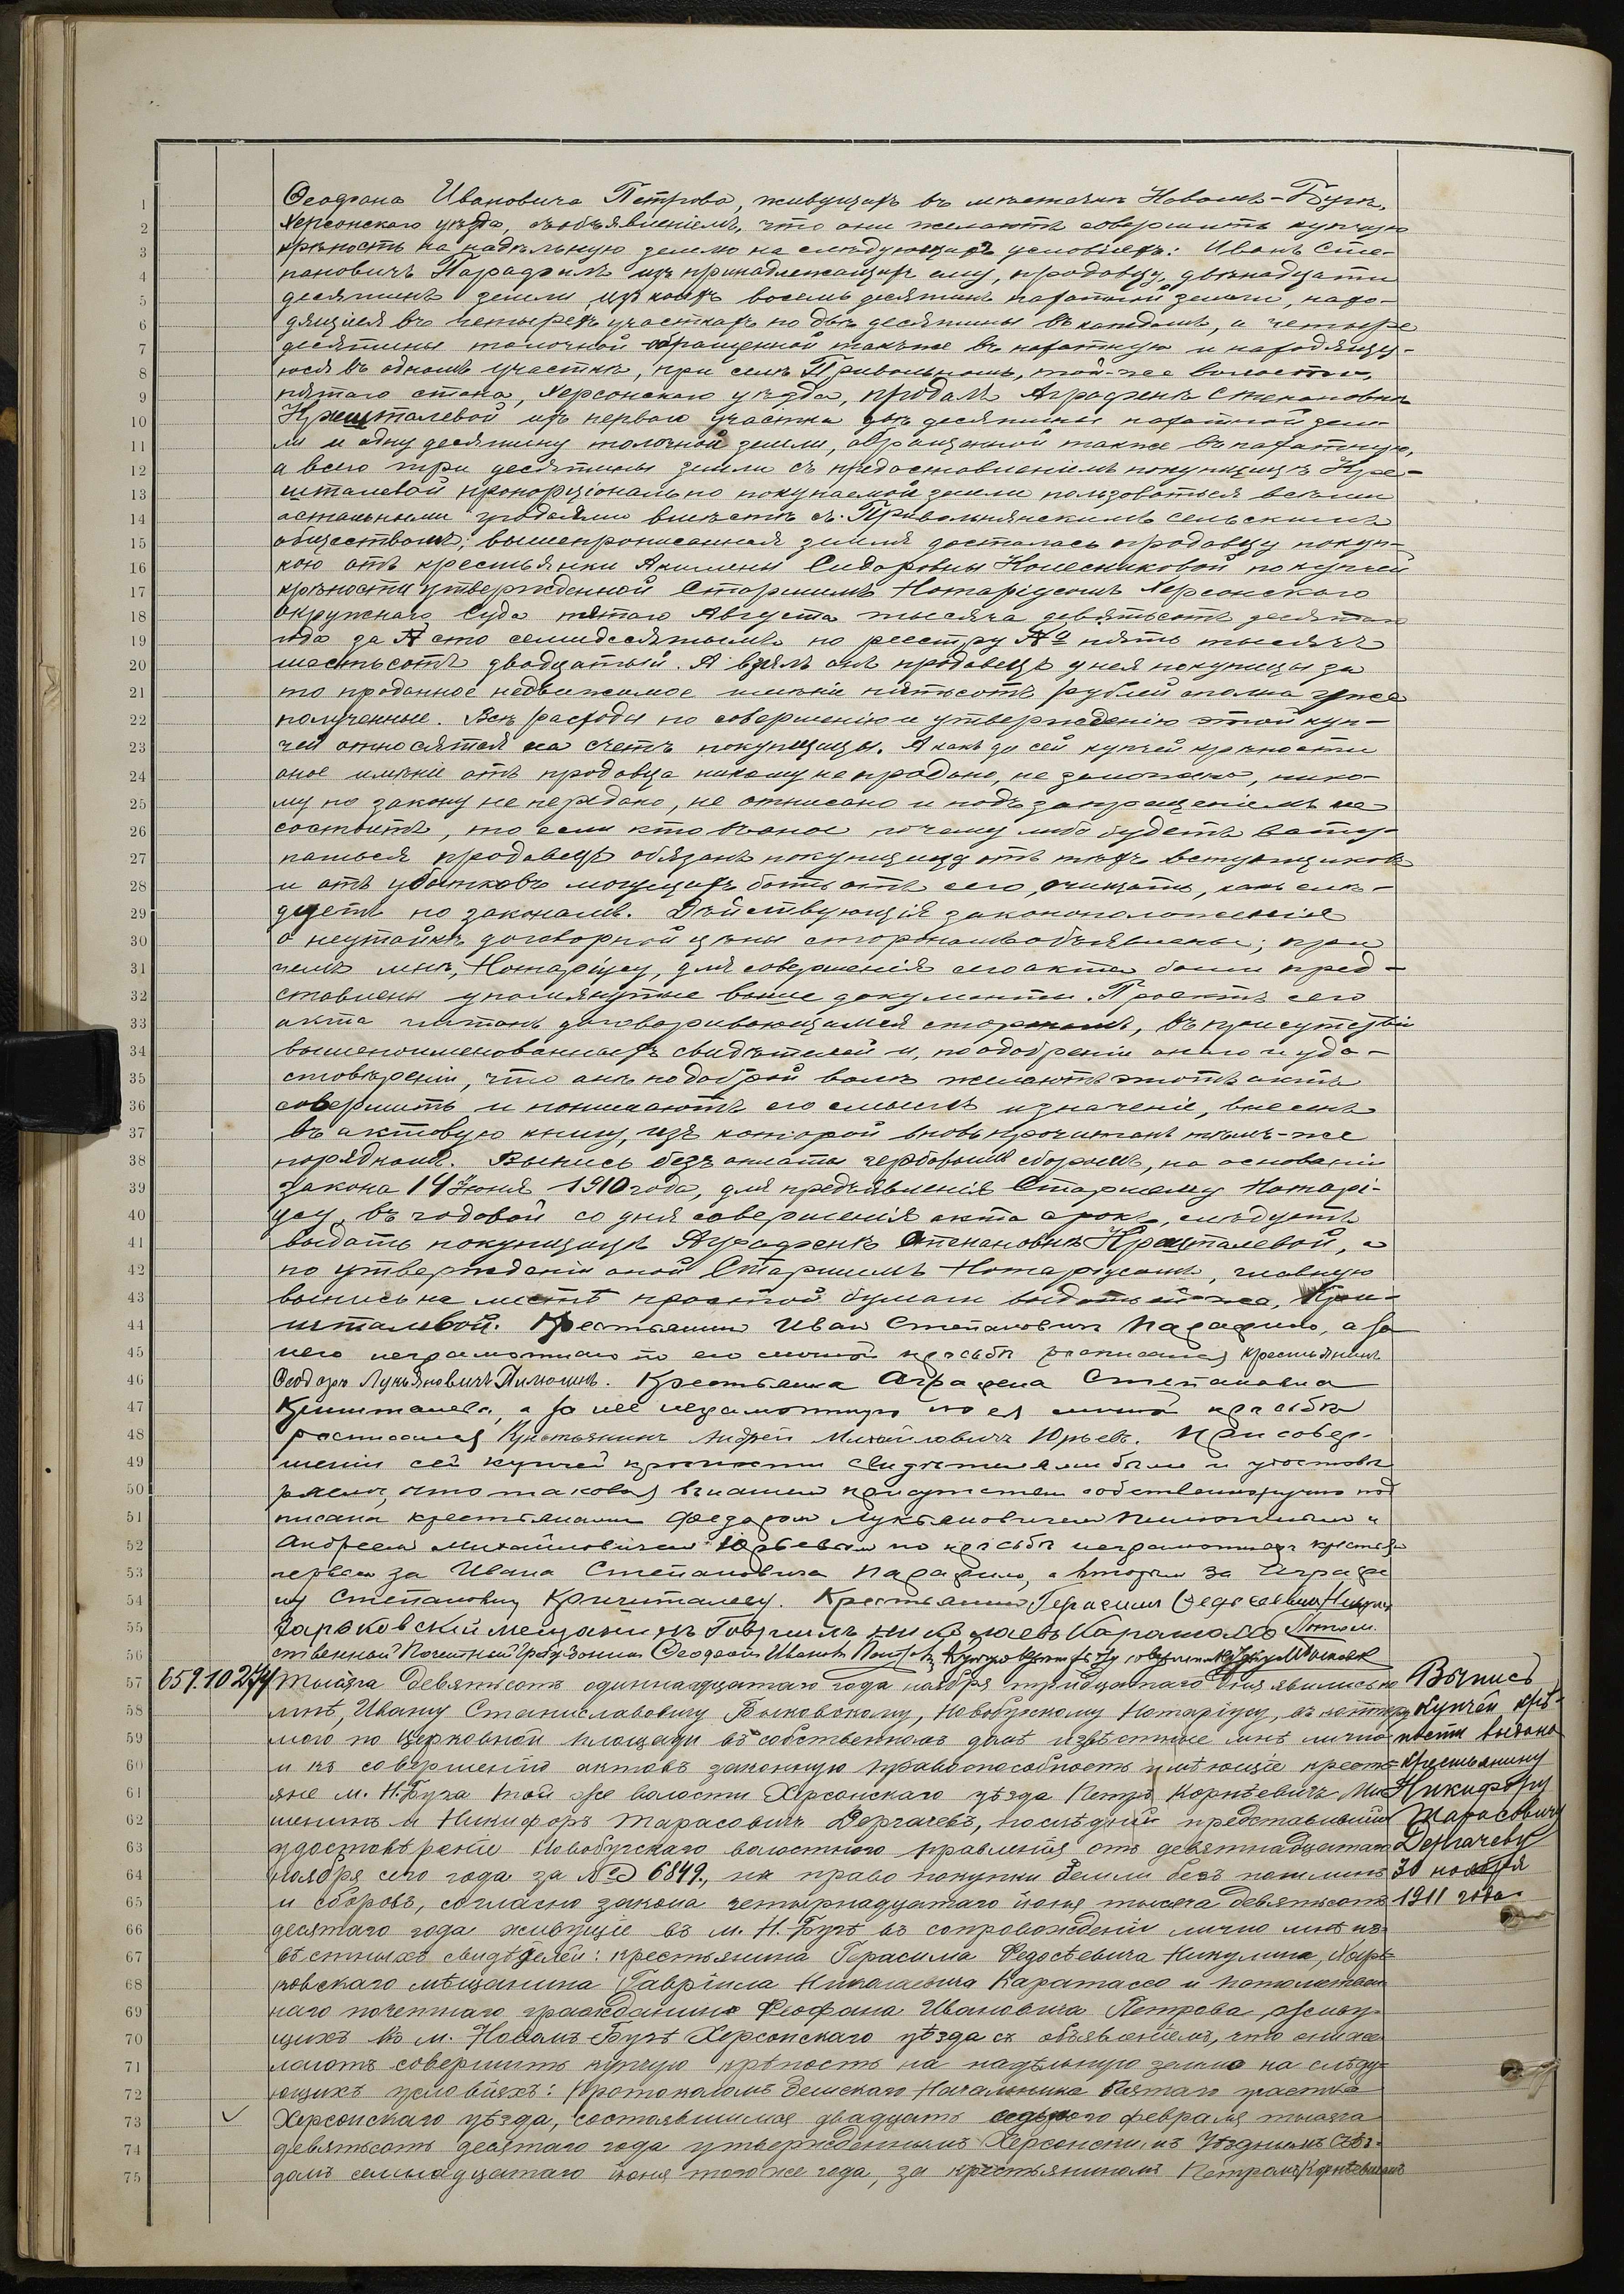 Ѳеофана Ивановича Петрова, живущихъ въ мѣстечкѣ Новомъ-Бугѣ,
Херсонскаго уѣзда, съ объявленіемъ, что они желаютъ совершить купчую
крѣпость на надѣльную землю на слѣдующихъ условіяхъ: Иванъ Сте-
пановичъ Парафилъ изъ принадлежащихъ ему, продавцу, двѣнадцати
десятинъ земли изъ коихъ восемь десятинъ пахатной земли, нахо-
дящіяся въ четырехъ участкахъ по двѣ десятины въ каждомъ, и четыре
десятины толочной обращенной также въ пахатную и находящу-
юся въ одномъ участкѣ, при селѣ Привольномъ, той-же волости,
пятаго стана, Херсонскаго уѣзда, продалъ Аграфенѣ Степановнѣ
Кришталевой изъ перваго участка двѣ десятины пахатной зем-
ли и одну десятину толочной земли, обращенной также въ пахатную,
а всего три десятины земли съ предоставленіемъ покупщицѣ Кри-
шталевой пропорціонально покупаемой земли пользоваться всѣми
остальными угодьями вмѣстѣ съ Привольнянскимъ сельскимъ
обществомъ; вышепрописанная земля досталась продавцу покуп-
кою отъ крестьянки Акилены Сидоровны Колесниковой по купчей
крѣпости утвержденной Старшимъ Нотаріусомъ Херсонскаго
Окружнаго Суда пятаго Августа тысяча девятьсотъ десятаго
года за № сто семидесятымъ по реестру № пять тысячъ
шестьсотъ двадцатый. А взялъ онъ продавецъ у нея покупщицы за
то проданное недвижимое имѣніе пятьсотъ рублей сполна уже
полученные. Всѣ расходы по совершенію и утвержденію этой куп-
чей относятся на счетъ покупщицы. А какъ до сей купчей крѣпости
оное имѣніе отъ продавца никому не продано, не заложено, нико-
му по закону не передано, не отписано и подъ запрещеніемъ не
состоитъ, то если кто въ оное почему либо будетъ всту-
паться продавецъ обязанъ покупщицу отъ тѣхъ вступщиковъ
и отъ убытковъ могущихъ быть отъ сего, очищать, какъ слѣ-
дуетъ по законамъ. Дѣйствующія законоположенія
о неутайкѣ договорной цѣны сторонамъ объявлены; при
чемъ мнѣ, Нотаріусу, для совершенія сего акта были пред-
ставлены упомянутые выше документы. Проектъ сего
акта читанъ договаривающимся сторонамъ, въ присутствіи
вышепоименованныхъ свидѣтелей и, по одобреніи онаго и удо-
стовѣреніи, что они по доброй волѣ желаютъ этотъ актъ
совершить и понимаютъ его смыслъ и значеніе, внесенъ
въ актовую книгу, изъ которой вновь прочитанъ тѣмъ-же
порядкомъ. Выпись безъ оплаты гербовымъ сборомъ, на основаніи
закона 14 Іюня 1910 года, для предъявленія Старшему Нотарі-
усу, въ годовой со дня совершенія акта срокъ, слѣдуетъ
выдать покупщицѣ Аграфенѣ Степановнѣ Кришталевой, а
по утвержденіи оной Старшимъ Нотаріусомъ, главную
выпись на листѣ простой бумаги выдать ей же, Кри-
шталевой. Крестьянинъ Иван Степанович Парафило, а за
него неграмотнаго по его личной просьбѣ росписался крестьянинъ
Ѳеодоръ Лукьяновичъ Пилюгинъ. Крестьянка Аграфена Степановна
Кришталева, а за нее неграмотную по ея личной просьбѣ
росписался Крестьянинъ Андрей Михайловичъ Юрьевъ. При совер-
шеніи сей купчей крѣпости свидѣтелями были и удостовѣ
ряемъ, что таковая въ нашемъ присутствіи собственноручно под
писана крестьянами Федором Лукьяновичем Пилюгиным и
Андреем Михайловичем Юрьевым по просьбѣ неграмотныхъ крестьян
первым за Ивана Степановича Парафило, а вторым за Аграфе
ну Степановну Кришталеву. Крестьянин Герасим Федосеевич Никулин
Харьковскій мещанинъ Гавриилъ Николаевъ Каратассо Потом
ственный Почетный Гражданинъ Ѳеофанъ Ивановъ Петровъ
659. 10274 Тысяча девятьсотъ одиннадцатаго года ноября тридцатаго дня явились ко
мнѣ, Ивану Станиславовичу Быковскому, Новобугскому Нотаріусу, въ контору
мою по Церковной площади въ собственномъ домѣ извѣстные мнѣ лично
и къ совершенію актовъ законную правоспособность имѣющіе крестья
яне м. Н.-Буга той же волости Херсонскаго уѣзда Петръ Корнѣевичъ Ми
шининъ и Никифоръ Тарасовичъ Дергачевъ, послѣдній представившій
удостовѣреніе Новобугскаго волостного правленія отъ девятнадцатаго
ноября сего года за № 6849., на право покупки земли безъ пошлинъ
и сборовъ, согласно закона четырнадцатаго іюня тысяча девятьсотъ
десятаго года живущіе въ м. Н.-Бугѣ въ сопровожденіи лично мнѣ из-
вѣстныхъ свидѣтелей: крестьянина Герасима Федосѣевича Никулина, Харь
ковскаго мѣщанина Гавріила Николаевича Каратассо и потомствен
наго почетнаго гражданина Феофана Ивановича Петрова, живу-
щихъ въ м. Новомъ-Бугѣ Херсонскаго уѣзда съ объявленіемъ, что они же-
лаютъ совершить купчую крѣпость на надѣльную землю на слѣду-
ющихъ условіяхъ: Протоколомъ Земскаго Начальника Пятаго участка
Херсонскаго уѣзда, состоявшимся двадцать седьмого февраля тысяча
девятьсотъ десятаго года утвержденнымъ Херсонскимъ Уѣзднымъ Съѣз-
домъ семнадцатаго іюня того же года, за крестьяниномъ Петромъ Корнѣевичемъ
Выпись
купчей крѣ-
пости выдана
Крестьянину
Никифору
Тарасовичу
Дергачеву
30 ноября
1911 года.
1
2
3
4
5
6
7
8
9
10
11
12
13
14
15
16
17
18
19
20
21
22
23
24
25
26
27
28
29
30
31
32
33
34
35
36
37
38
39
40
41
42
43
44
45
46
47
48
49
50
51
52
53
54
55
56
57
58
59
60
61
62
63
64
65
66
67
68
69
70
71
72
73
74
75